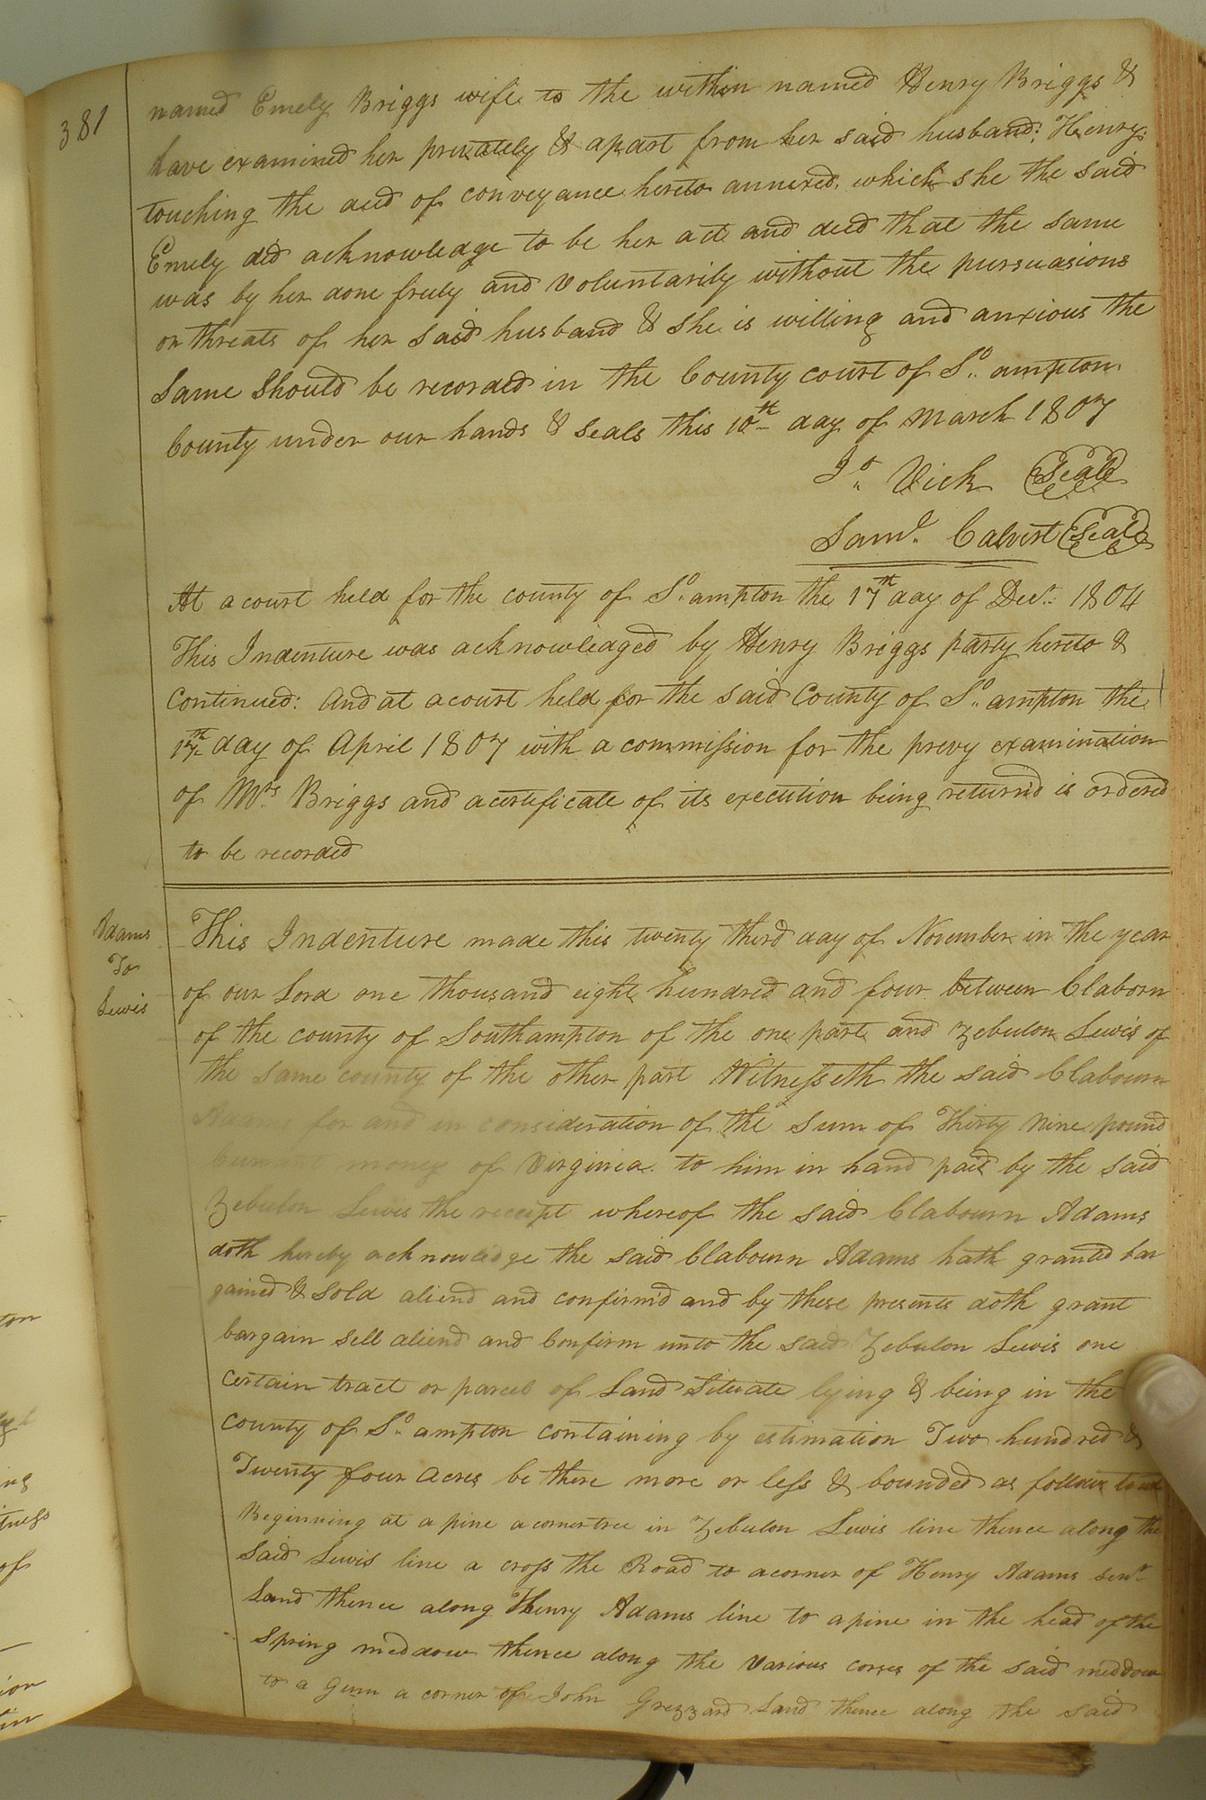 381
named Emely Briggs wife to the within named Henry Briggs &
have examined her privately & apart from her said husband: Henry:
touching the deed of conveyance hereto annexed, which she the said
Emely did acknowledge to be her act and deed that the same
was by her done freely and voluntarily without the pursuasions
or threats of her said husband & she is willing and anxious the
Same Should be recorded in the County court of So. ampton
County under our hands & seals this 10th day of March 1807
Jo. Vick Seal
Saml. Calvert Seal
At a court held for the county of So. ampton the 17th day of Decr. 1804
This Indenture was acknowledged by Henry Briggs party hereto &
Continued: And at a court held for the said County of So. ampton the
day of April 1807 with a commission for the prevy examination
of Mrs Briggs and a certificate of its execution being returnd is ordered
to be recorded
Adams
To
Lewis
This Indenture made this twenty third day of November in the year
of our Lord one thousand eight hundred and four between Claborn
of the county of Southampton of the one part and Zebulon Lewis of
the same county of the other part Witnesseth the said Clabourn
Adams for and in consideration of the sum of Thirty Nine pound
Current money of Virginia to him in hand paid by the said
Zebulon Lewis the receipt whereof the said Clabourn Adams
doth hereby acknowledge the said Clabourn Adams hath granted bar
gained & Sold aliend and confirmd and by these presents doth grant
bargain sell aliend and Confirm unto the said Zebulon Lewis one
certain tract or parcel of Land Situate lying & being in the
county of So. ampton containing by estimation Two hundred &
Twenty four Acres be there more or less & bounded as follows to wit
Beginning at a pine a corner tree in Zebulon Lewis line thence along the
said Lewis line a cross the Road to a corner of Henry Adams senr.
Land thence along Henry Adams line to a pine in the head of the
Spring meddow thence along the various corses of the said meddow
to a Gum a corner of John Grizzard Land thence along the said